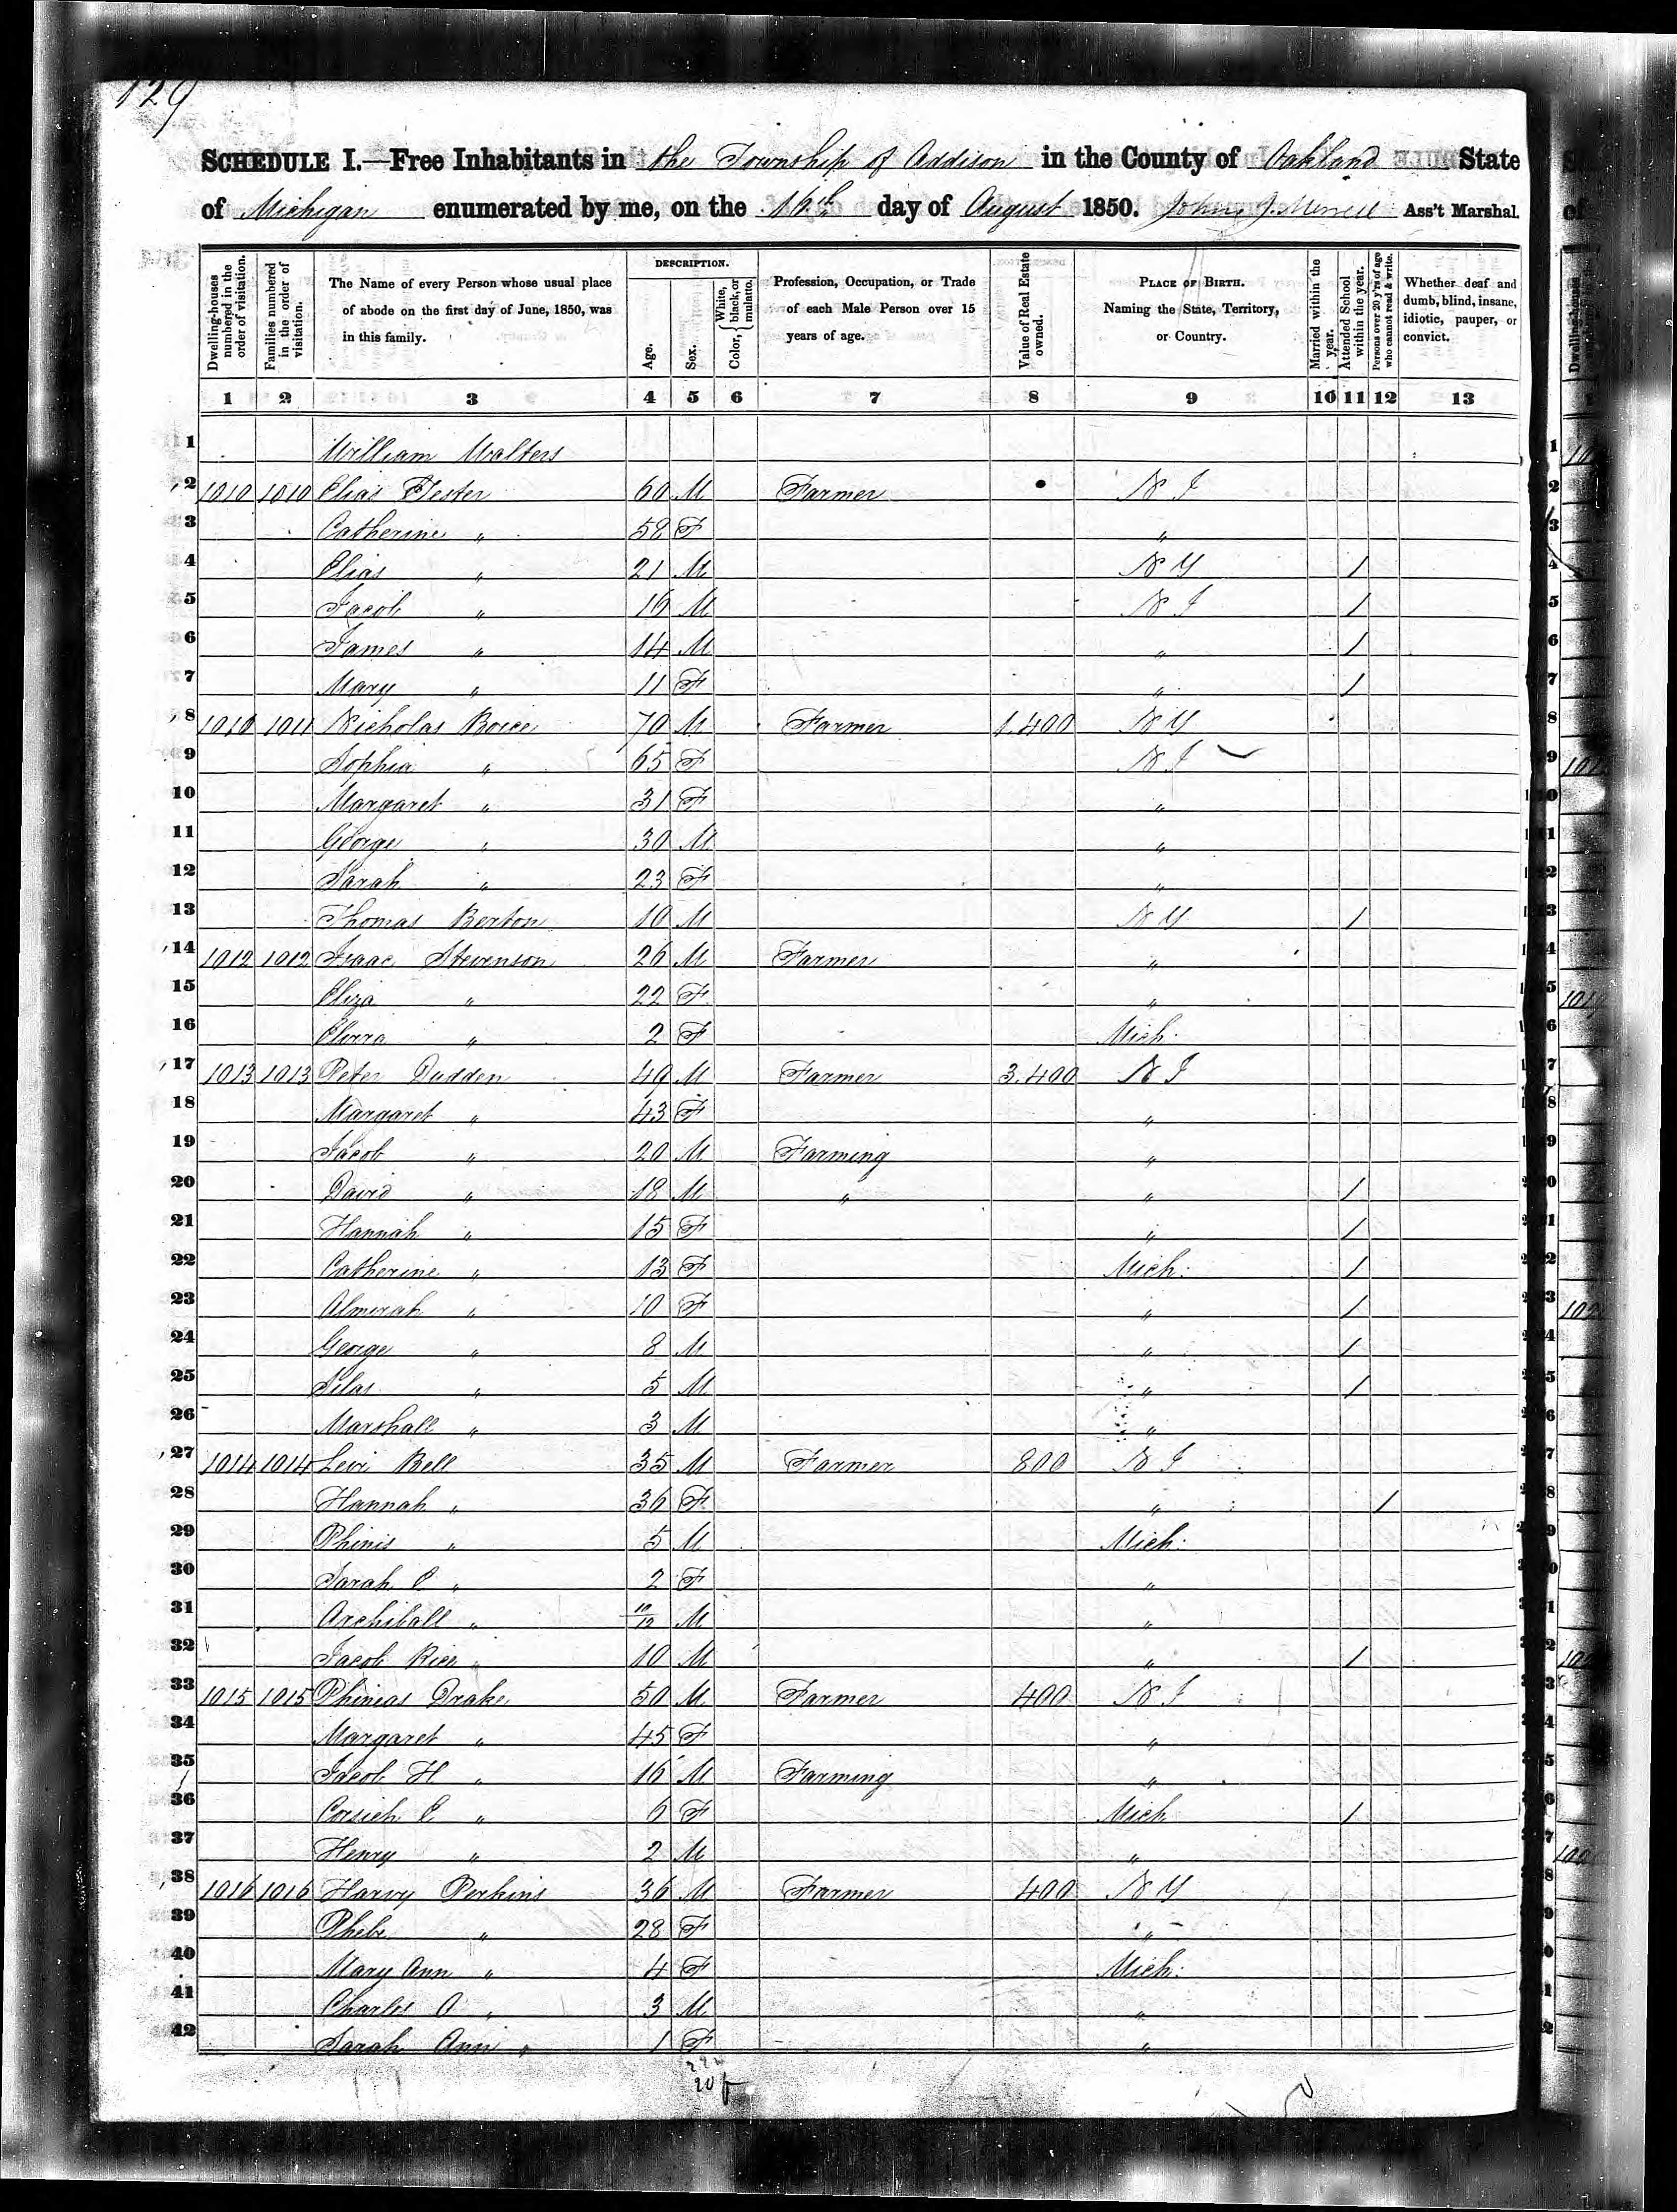 129
SCHEDULE I.—Free Inhabitants in the Township of Addison in the County of Oakland State
of Michigan enumerated by me, on the 16th day of August 1850. John J. Merrell Ass't Marshal.
Dwelling-houses numbered in the order of visitation.
Families numbered in the order of visitation.
The Name of every Person whose usual place of abode on the first day of June, 1850, was in this family.
DESCRIPTION.
Age.
Sex.
Color, { White, black, or mulatto.
Profession, Occupation, or Trade of each Male Person over 15 years of age.
Value of Real Estate owned.
PLACE OF BIRTH. Naming the State, Territory, or Country.
Married within the year.
Attended School within the year.
Persons over 20 y'rs of age who cannot read & write.
Whether deaf and dumb, blind, insane, idiotic, pauper, or convict.
1 2 3 4 5 6 7 8 9 10 11 12 13
1 William Walters
2 1010 1010 Elias Tester 60 M Farmer N J
3 Catherine " 58 F "
4 Elias " 21 M N Y 1
5 Jacob " 16 M N J 1
6 James " 14 M " 1
7 Mary " 11 F " 1
8 1010 1011 Nicholas Boice 70 M Farmer 1.400 N Y
9 Sophia " 65 F N J
10 Margaret " 31 F "
11 George " 30 M "
12 Sarah " 23 F "
13 Thomas Berton 10 M N Y 1
14 1012 1012 Isaac Stevenson 26 M Farmer "
15 Eliza " 22 F "
16 " 2 F Mich.
17 1013 1013 Peter Dudden 49 M Farmer 3.400 N J
18 Margaret " 43 F "
19 Jacob " 20 M Farming "
20 David " 18 M " " 1
21 Hannah " 15 F " 1
22 Catherine " 13 F Mich: 1
23 Almirah " 10 F " 1
24 George " 8 M " 1
25 Silas " 5 M " 1
26 Marshall " 3 M "
27 1014 1014 Levi Bell 35 M Farmer 800 N J
28 Hannah " 36 F " 1
29 Phinis " 5 M Mich:
30 Sarah C " 2 F "
31 Archiball " 10/12 M "
32 Jacob Rier " 10 M " 1
33 1015 1015 Phineas Drake 50 M Farmer 400 N J
34 Margaret " 45 F "
35 Jacob H " 16 M Farming "
36 C " 6 F Mich 1
37 Henry " 2 M "
38 1016 1016 Harvy Perkins 36 M Farmer 400 N Y
39 Phebe " 28 F "
40 Mary Ann " 4 F Mich:
41 Charles O " 3 M "
42 Sarah Ann " 1 F "
20 f